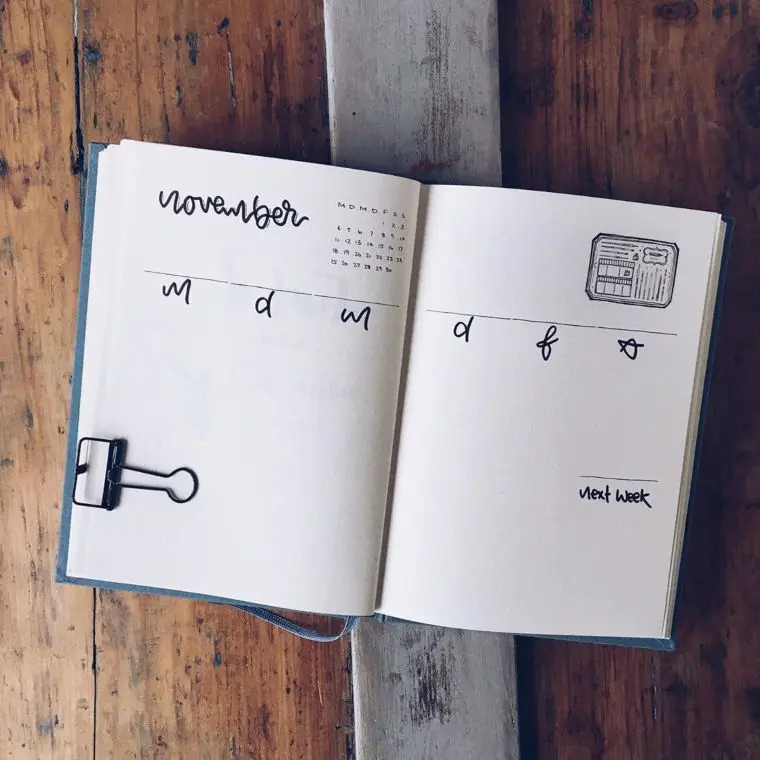 november
M D M D F S S
1 2 3
4 5 6 7 8 9 10
11 12 13 14 15 16 17
18 19 20 21 22 23 24
25 26 27 28 29 30
m d m
d f
next week